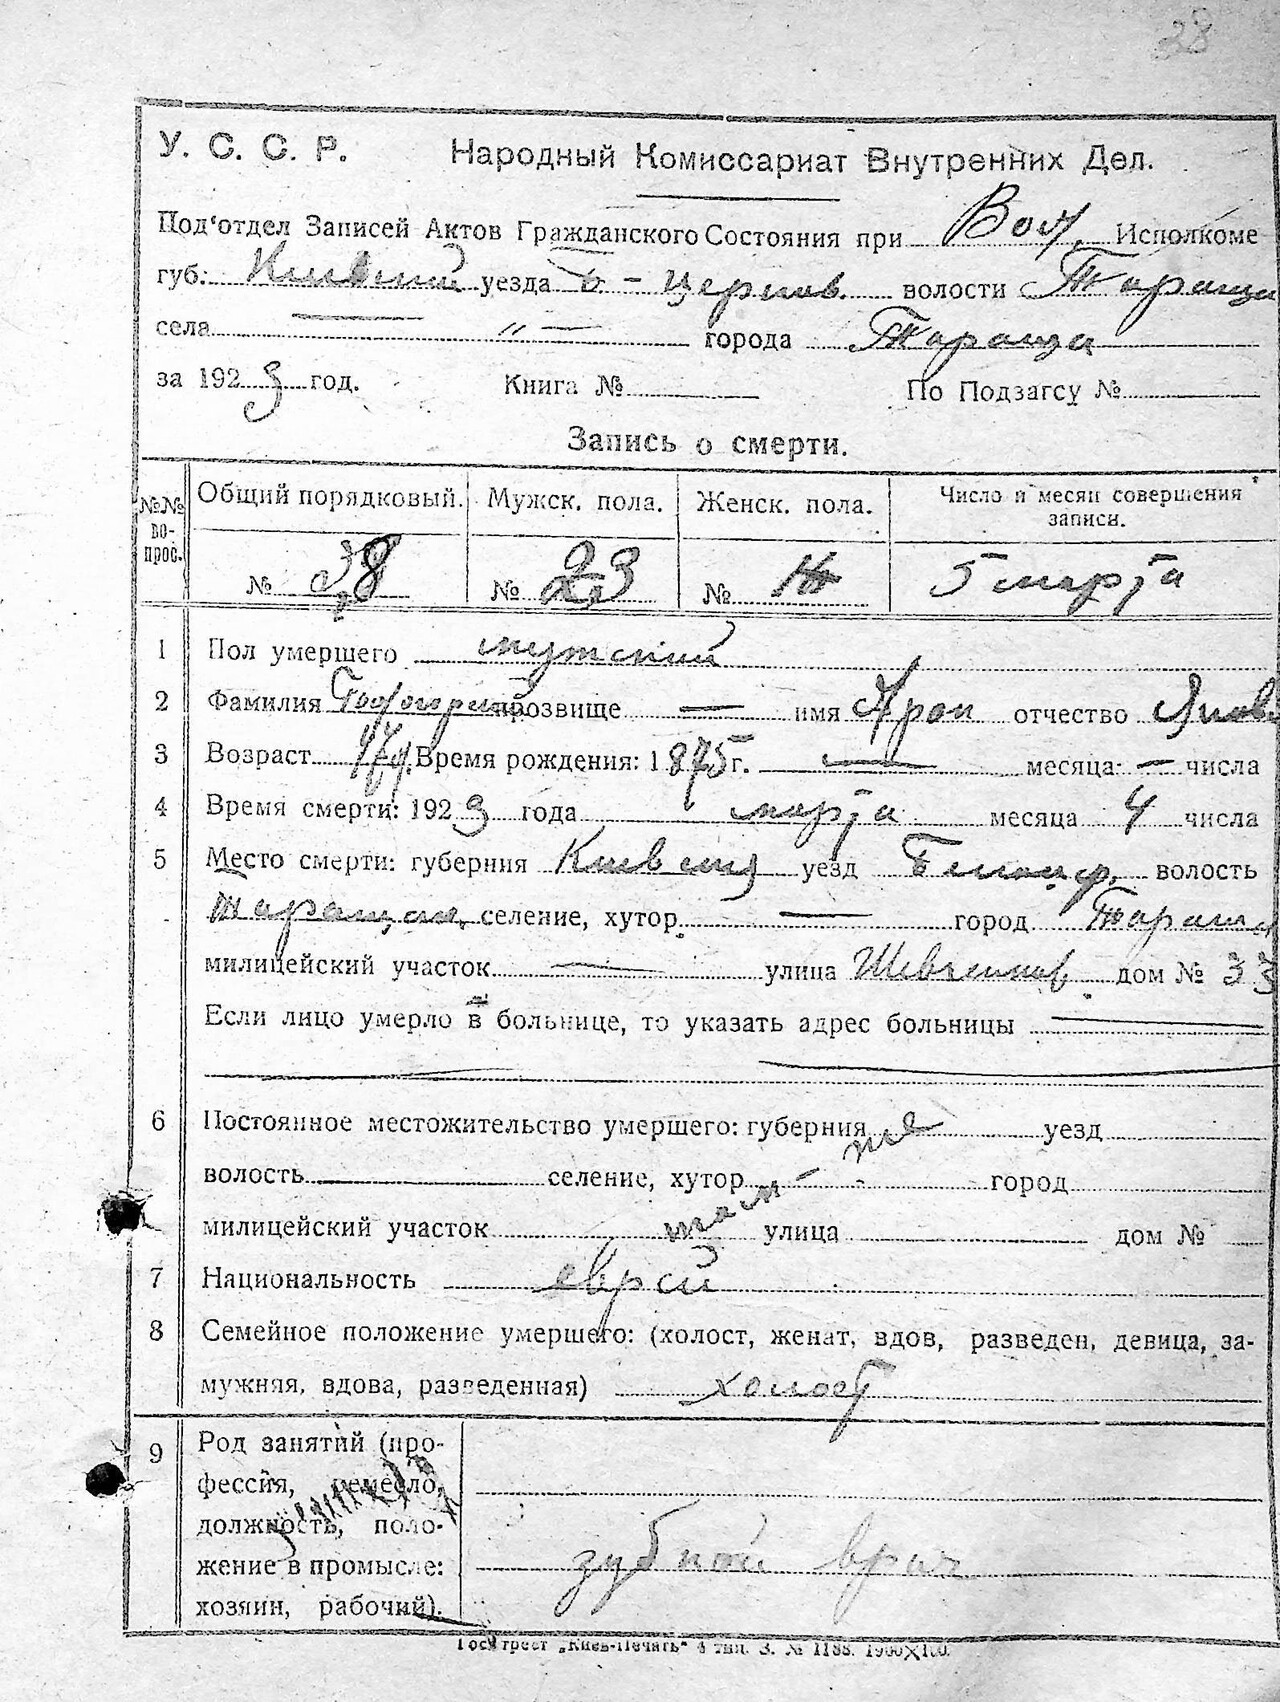 28
У. С. С. Р. Народный Комиссариат Внутренних Дел.
Под'отдел Записей Актов Гражданского Состояния при Вол. Исполкоме
губ. Киевский уезда Б-Церков. волости Таращан
села — „ — города Тараща
за 1923 год. Книга № По Подзагсу №
Запись о смерти.
№№ вопрос. Общий порядковый. Мужск. пола. Женск. пола. Число и месяц совершения записи.
№ 38 № 23 № 5 марта
1 Пол умершего мужский
2 Фамилия прозвище — имя Арон отчество
3 Возраст Время рождения: 1875 г. — месяца — числа
4 Время смерти: 1923 года марта месяца 4 числа
5 Место смерти: губерния Киевская уезд Белоцер. волость
Таращан. селение, хутор — город Тараща
милицейский участок — улица Шевченков дом № 33
Если лицо умерло в больнице, то указать адрес больницы —
6 Постоянное местожительство умершего: губерния уезд
волость селение, хутор там-же город
милицейский участок улица дом №
7 Национальность еврей
8 Семейное положение умершего: (холост, женат, вдов, разведен, девица, за-
мужняя, вдова, разведенная) холост
9 Род занятий (про-
фессия, ремесло,
должность, поло-
жение в промысле: зубной врач
хозяин, рабочий).
Гостргест „Киев-Печать" 4 тип. З. № 1188.